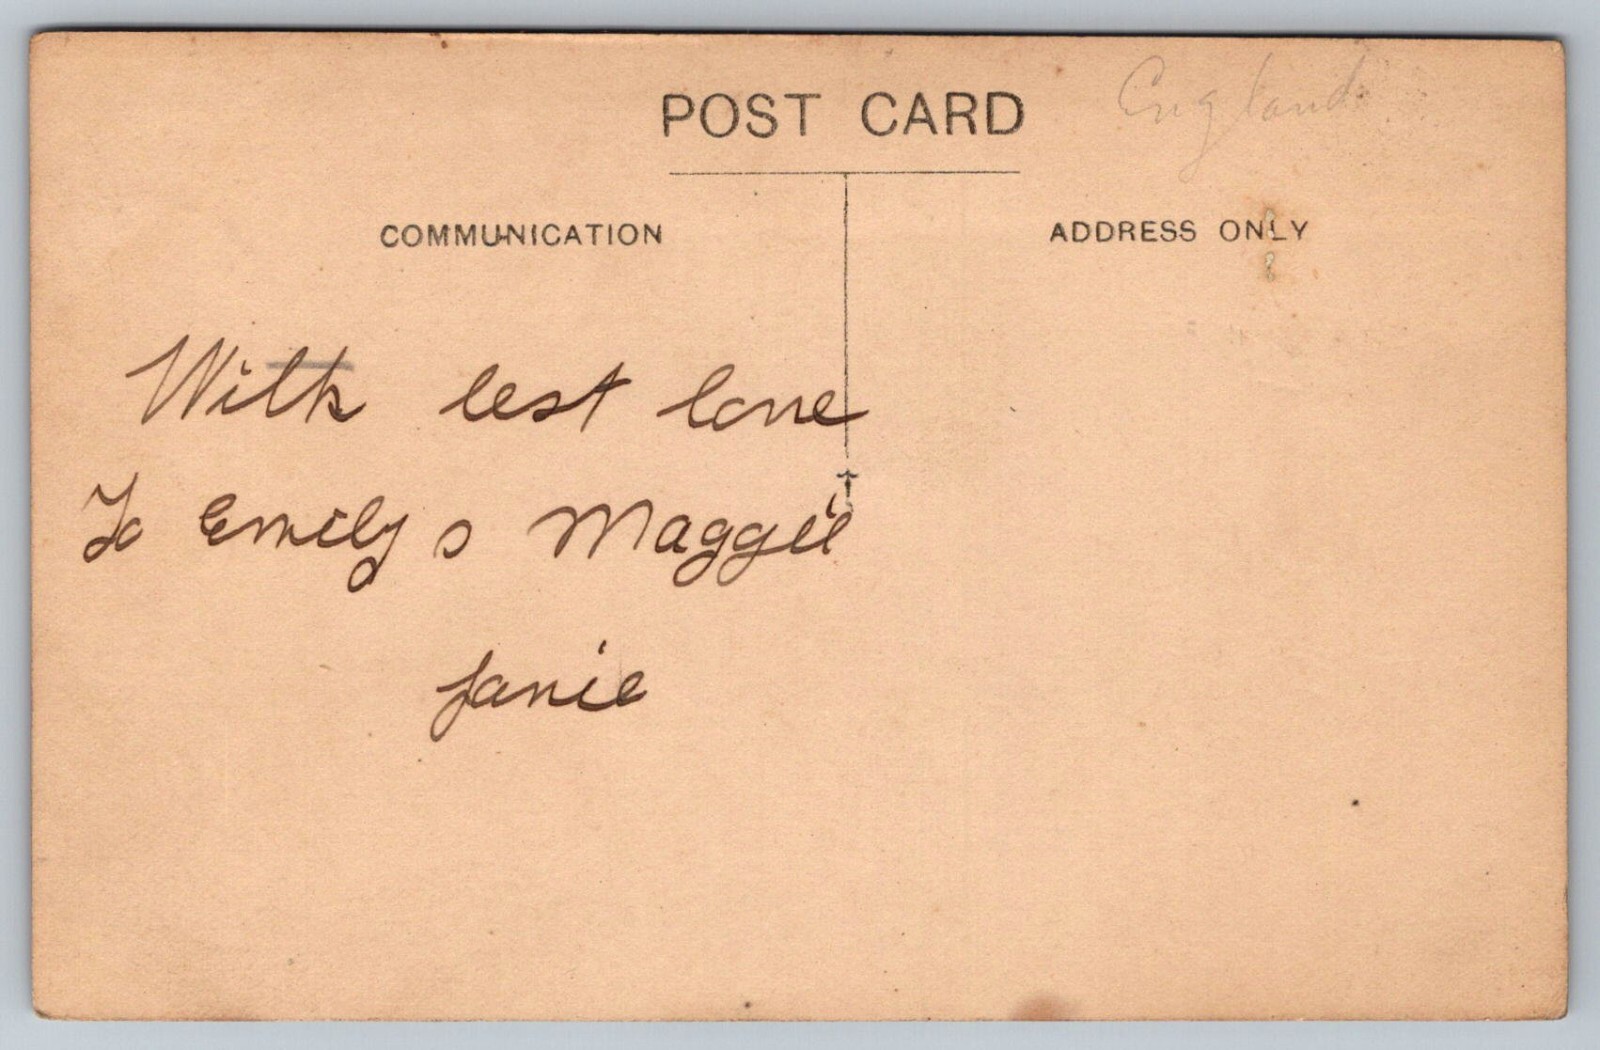 POST CARD
England
COMMUNICATION
ADDRESS ONLY
With best love
To Emily & Maggie
Janie